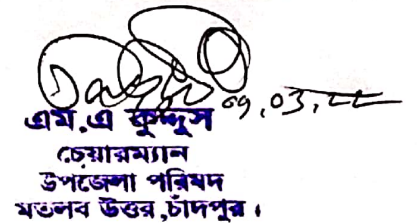 ০৭.০৩.২২
এম.এ কুদ্দুস
চেয়ারম্যান
উপজেলা পরিষদ
মতলব উত্তর,চাঁদপুর।